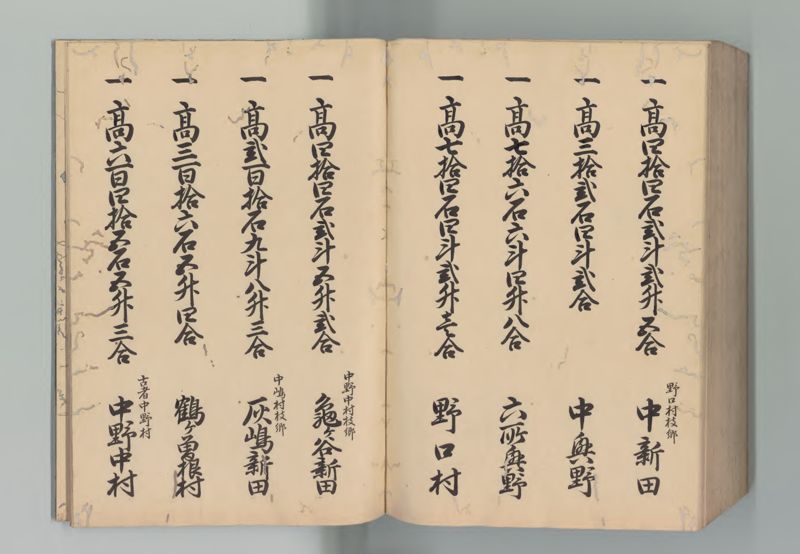 一高四拾四石弐斗弐升五合
野口村枝郷
中新田
一高三拾弐石四斗弐合
中奥野
一高七拾六石六斗四升八合
六所奥野
一高七拾四石四斗弐升壱合
野口村
一高四拾四石弐斗五升弐合
中野中村枝郷
亀ヶ谷新田
一高弐百拾石九斗八升三合
中嶋村枝郷
灰嶋新田
一高三百拾六石五升四合
鶴ヶ曽根村
一高六百四拾五石五升三合
古者中野村
中野中村